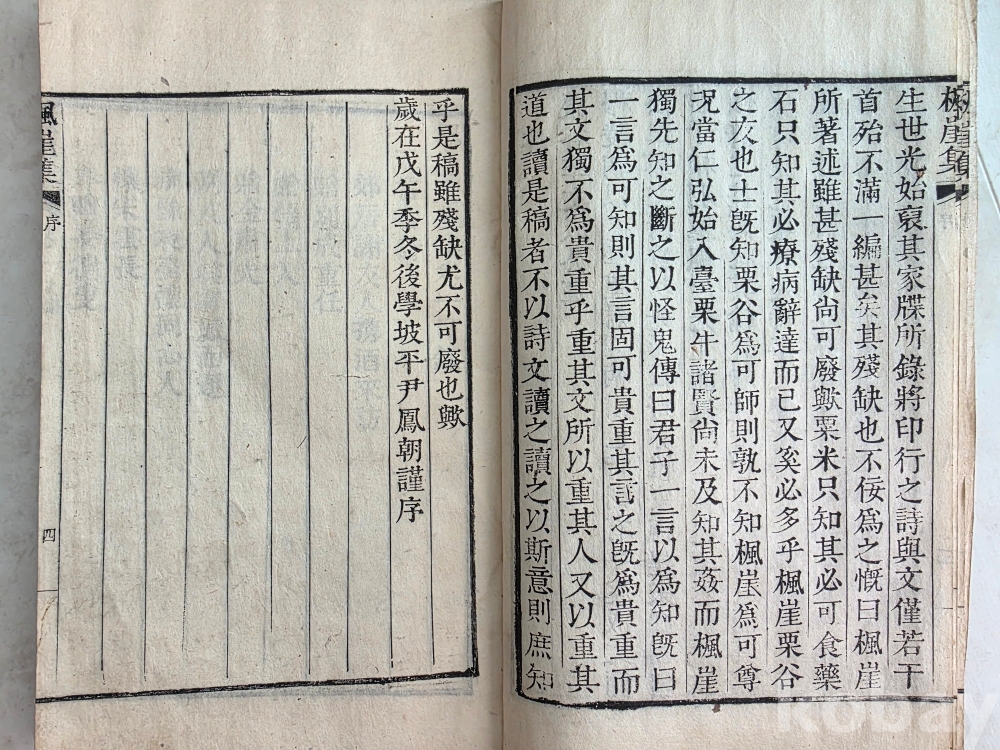 楓崖集
序
生世光始裒其家牒所錄將印行之詩與文僅若干
首殆不滿一編甚矣其殘缺也不侫爲之慨曰楓崖
所著述雖甚殘缺尙可廢歟粟米只知其必可食藥
石只知其必療病辭達而已又奚必多乎楓崖栗谷
之友也士旣知栗谷爲可師則孰不知楓崖爲可尊
况當仁弘始入臺栗牛諸賢尙未及知其姦而楓崖
獨先知之斷之以怪鬼傳曰君子一言以爲知旣曰
一言爲可知則其言固可貴重其言之旣爲貴重而
其文獨不爲貴重乎重其文所以重其人又以重其
道也讀是稿者不以詩文讀之讀之以斯意則庶知
乎是稿雖殘缺尤不可廢也歟
歲在戊午季冬後學坡平尹鳳朝謹序
楓崖集
序
四
kobay